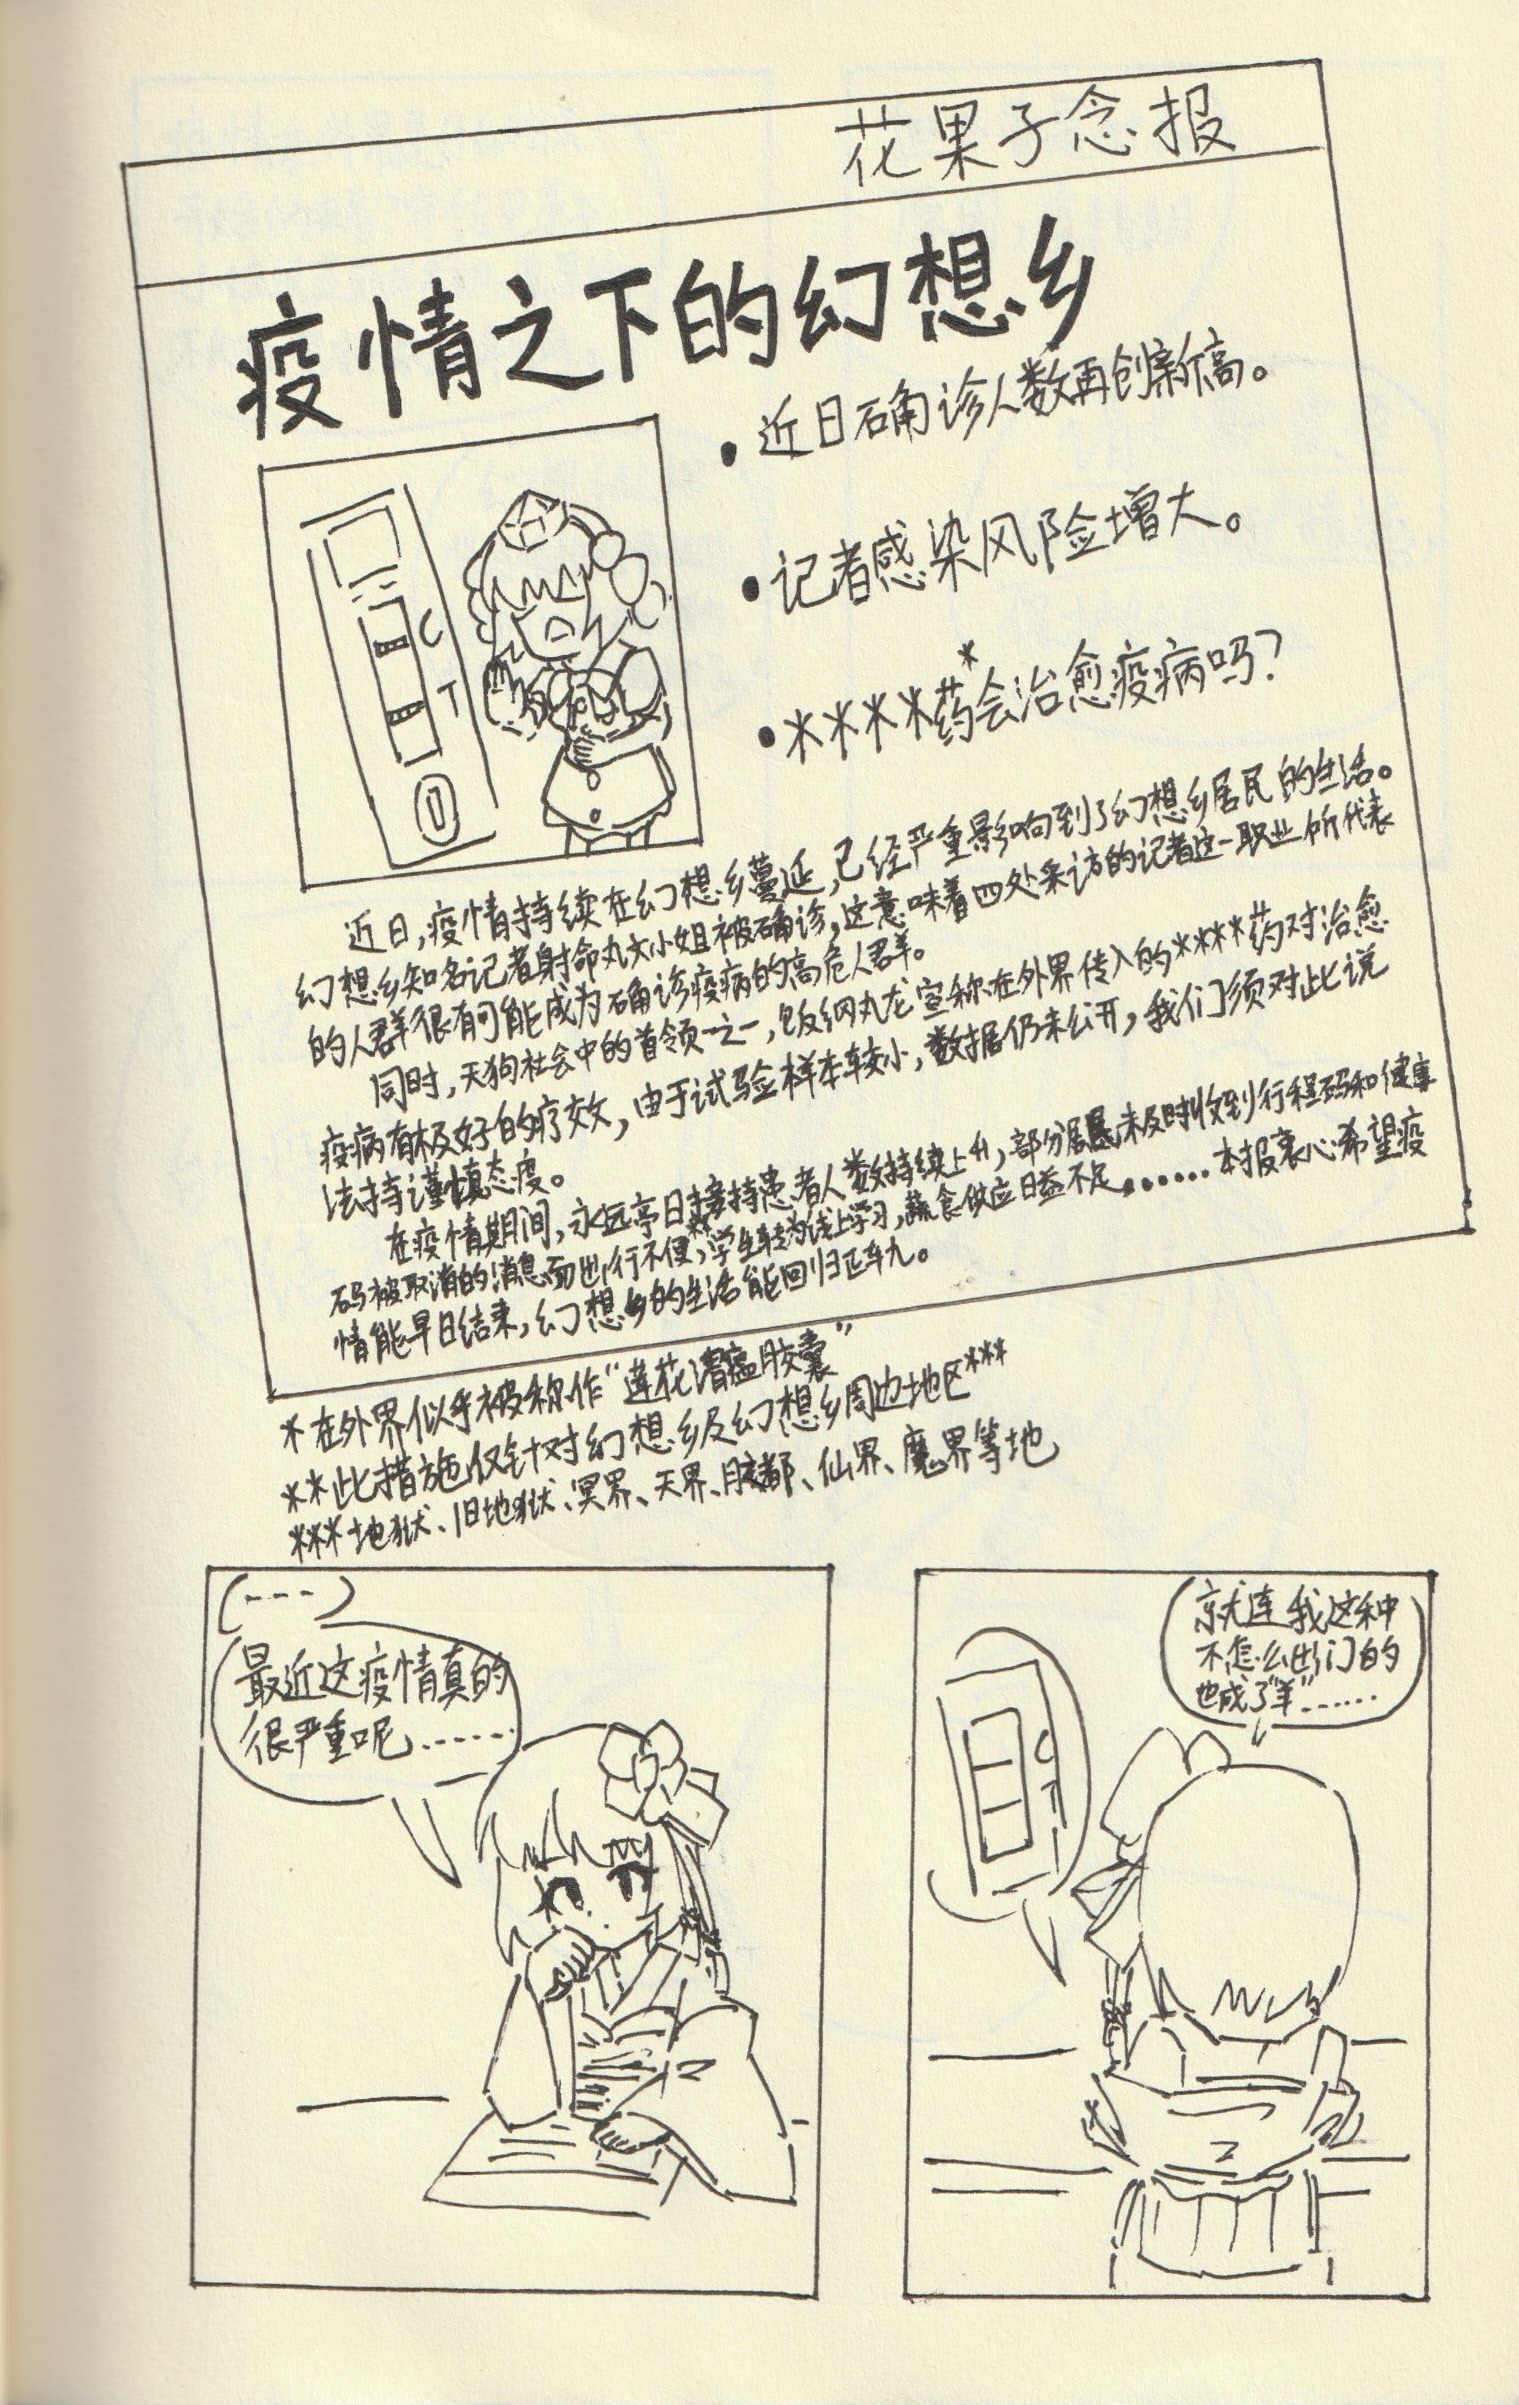 花果子念报
疫情之下的幻想乡
•近日确诊人数再创新高。
•记者感染风险增大。
•****药*会治愈疫病吗?
C
T
近日,疫情持续在幻想乡蔓延,已经严重影响到了幻想乡居民的生活。
幻想乡知名记者射命丸文小姐被确诊,这意味着四处采访的记者这一职业所代表
的人群很有可能成为确诊疫病的高危人群。
同时,天狗社会中的首领之一,饭纲丸龙宣称在外界传入的****药对治愈
疫病有极好的疗效,由于试验样本较小,数据仍未公开,我们须对此说
法持谨慎态度。
在疫情期间,永远亭日接待患者人数持续上升,部分居民未及时收到行程码和健康
码被取消的消息而出行不便**,学生转为线上学习,蔬食供应日益不足......本报衷心希望疫
情能早日结束,幻想乡的生活能回归正轨。
*在外界似乎被称作“莲花清瘟胶囊”
**此措施仅针对幻想乡及幻想乡周边地区***
***地狱、旧地狱、冥界、天界、月都、仙界、魔界等地
(---)
最近这疫情真的
很严重呢......
就连我这种
不怎么出门的
也成了“羊”......
C
T